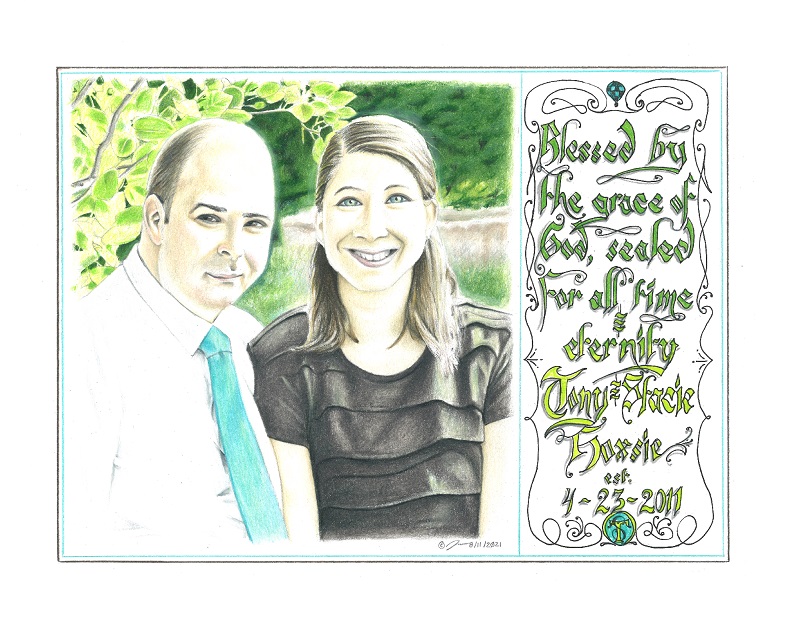 Blessed by
the grace of
God, sealed
for all time
&
eternity
Tony & Stacie
Hoxsie
est.
4-23-2011
T
© 8/11/2021